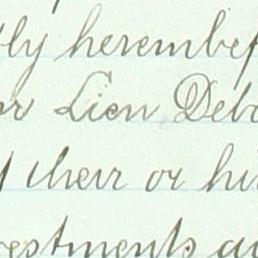 tly herembef
or Lien Deb
their or hi
estments a